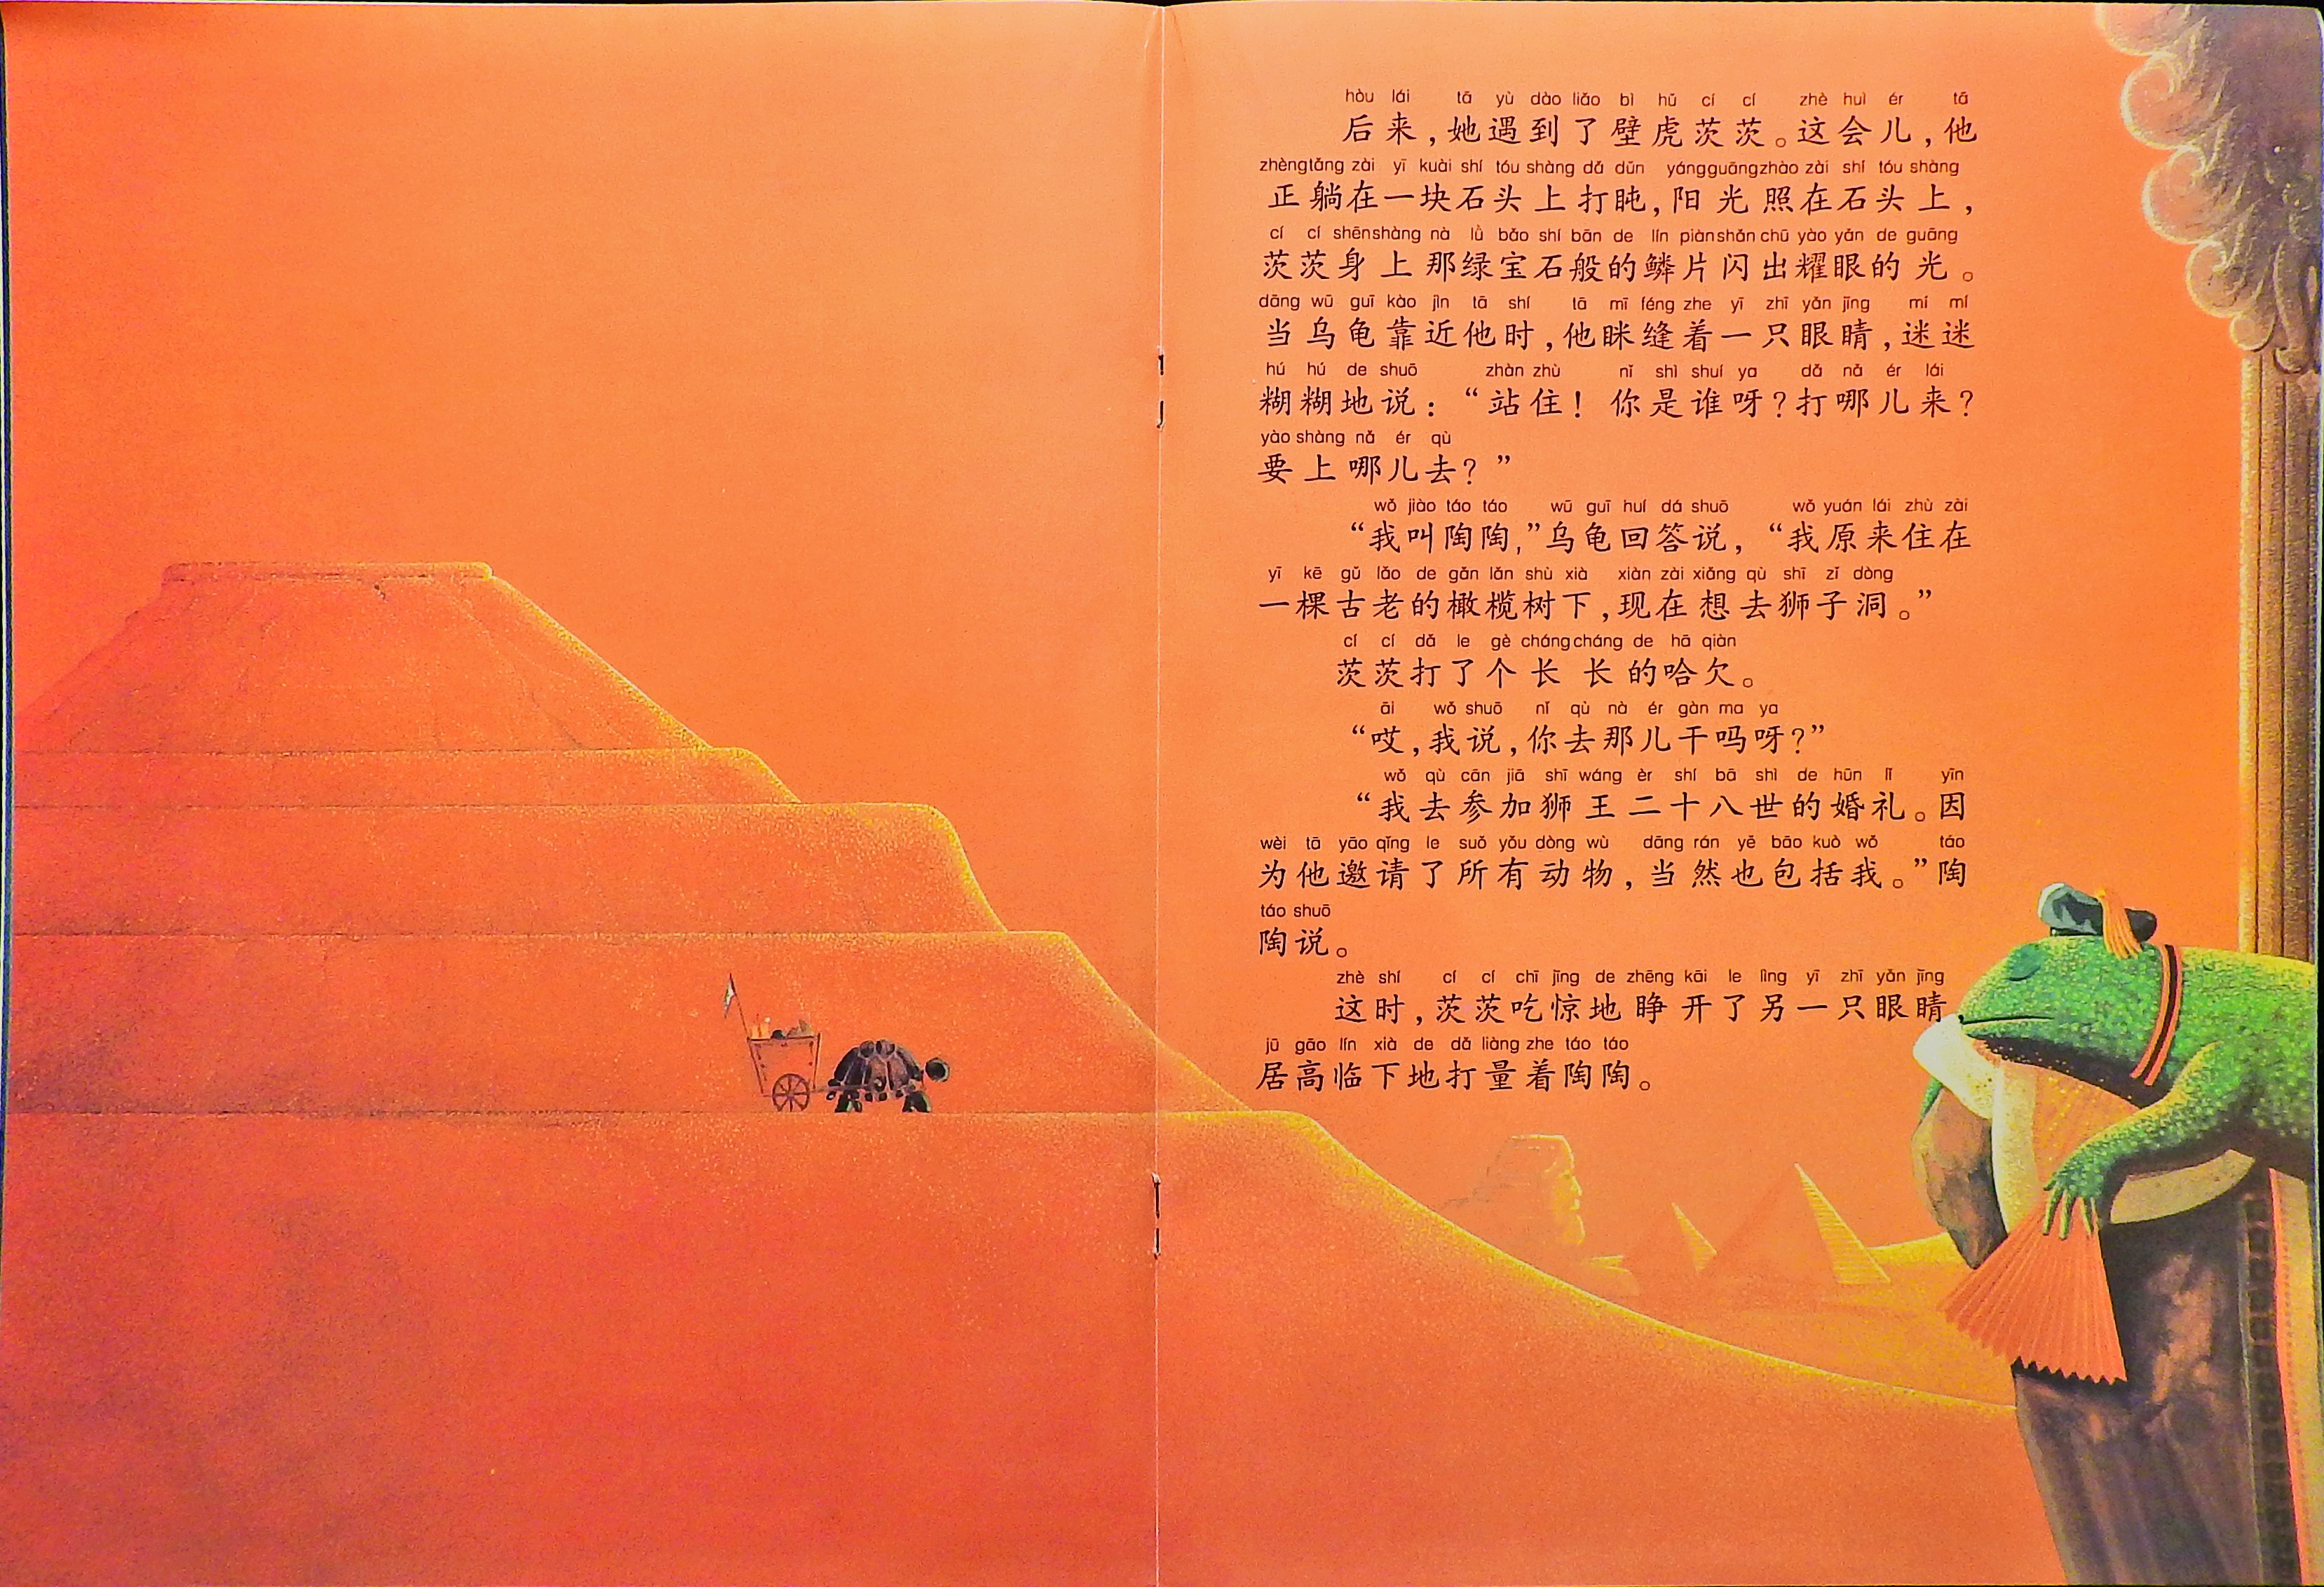 hòu lái tā yù dào liǎo bì hǔ cí cí zhè huì ér tā
后来,她遇到了壁虎茨茨。这会儿,他
zhèng tǎng zài yī kuài shí tóu shàng dǎ dǔn yáng guāng zhào zài shí tóu shàng
正躺在一块石头上打盹,阳光照在石头上,
cí cí shēn shàng nà lǜ bǎo shí bān de lín piàn shǎn chū yào yǎn de guāng
茨茨身上那绿宝石般的鳞片闪出耀眼的光。
dāng wū guī kào jìn tā shí tā mī féng zhe yī zhī yǎn jīng mí mí
当乌龟靠近他时,他眯缝着一只眼睛,迷迷
hú hú de shuō zhàn zhù nǐ shì shuí ya dǎ nǎ ér lái
糊糊地说:“站住!你是谁呀?打哪儿来?
yào shàng nǎ ér qù
要上哪儿去?”
wǒ jiào táo táo wū guī huí dá shuō wǒ yuán lái zhù zài
“我叫陶陶,”乌龟回答说,“我原来住在
yī kē gǔ lǎo de gǎn lǎn shù xià xiàn zài xiǎng qù shī zǐ dòng
一棵古老的橄榄树下,现在想去狮子洞。”
cí cí dǎ le gè cháng cháng de hā qiàn
茨茨打了个长长的哈欠。
āi wǒ shuō nǐ qù nà ér gàn ma ya
“哎,我说,你去那儿干吗呀?”
wǒ qù cān jiā shī wáng èr shí bā shì de hūn lǐ yīn
“我去参加狮王二十八世的婚礼。因
wèi tā yāo qǐng le suǒ yǒu dòng wù dāng rán yě bāo kuò wǒ táo
为他邀请了所有动物,当然也包括我。”陶
táo shuō
陶说。
zhè shí cí cí chī jīng de zhēng kāi le lìng yī zhī yǎn jīng
这时,茨茨吃惊地睁开了另一只眼睛
jū gāo lín xià de dǎ liàng zhe táo táo
居高临下地打量着陶陶。